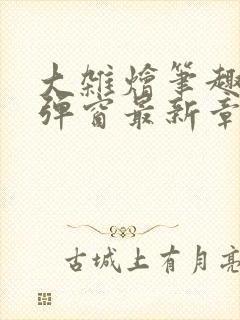 大雑燴筆趣
弾窗最新章
古城上有月亮